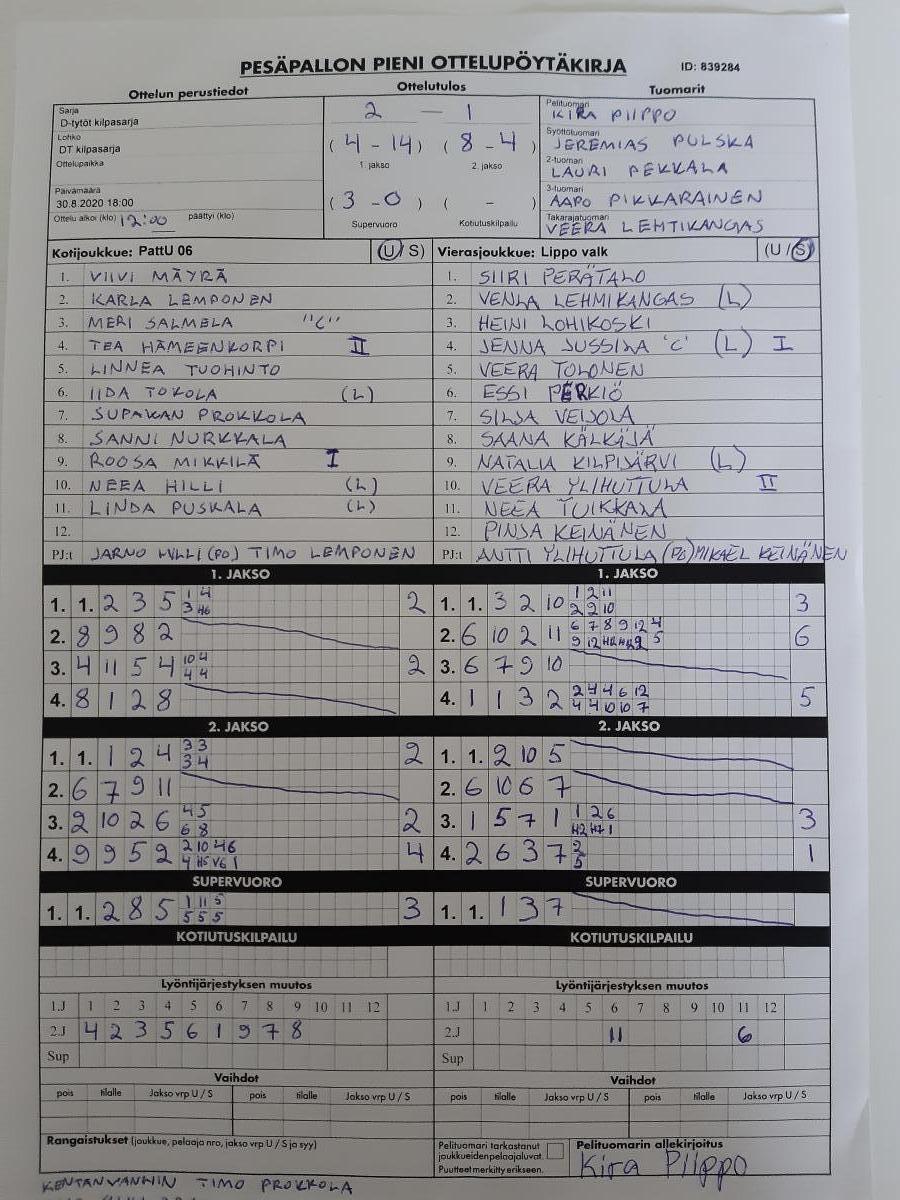 PESÄPALLON PIENI OTTELUPÖYTÄKIRJA ID: 839284
Ottelun perustiedot Ottelutulos Tuomarit
Sarja
D-tytöt kilpasarja
Lohko
DT kilpasarja
Ottelupaikka
Päivämäärä
30.8.2020 18:00
Ottelu alkoi (klo) 12:00 päättyi (klo)
2 — 1
(4 - 14) (8 - 4)
1. jakso 2. jakso
(3 - 0) ( - )
Supervuoro Kotiutuskilpailu
Pelituomari
KIRA PIIPPO
Syöttötuomari
JEREMIAS PULSKA
2-tuomari
LAURI PEKKALA
3-tuomari
AAPO PIKKARAINEN
Takarajatuomari
VEERA LEHTIKANGAS
Kotijoukkue: PattU 06 (U/S)
1. VIIVI MÄYRÄ
2. KARLA LEMPONEN
3. MERI SALMELA "C"
4. TEA HÄMEENKORPI II
5. LINNEA TUOHINTO
6. IIDA TOKOLA (L)
7. SUPAKAN PROKKOLA
8. SANNI NURKKALA
9. ROOSA MIKKILÄ I
10. NEEA HILLI (L)
11. LINDA PUSKALA (L)
12.
PJ:t JARNO HILLI (PO) TIMO LEMPONEN
Vierasjoukkue: Lippo valk (U/S)
1. SIIRI PERÄTALO
2. VENLA LEHMIKANGAS (L)
3. HEINI LOHIKOSKI
4. JENNA JUSSILA 'C' (L) I
5. VEERA TOLONEN
6. ESSI PERKIÖ
7. SILJA VEIJOLA
8. SAANA KÄLKÄJÄ
9. NATALIA KILPIJÄRVI (L)
10. VEERA YLIHUTTULA II
11. NEEA TUIKKALA
12. PINJA KEINÄNEN
PJ:t ANTTI YLIHUTTULA (PO) MIKAEL KEINÄNEN
1. JAKSO
1. 1. 2 3 5 1 4 2
3 H6
2. 8 9 8 2
3. 4 11 5 4 10 4 2
4 4
4. 8 1 2 8
2. JAKSO
1. 1. 1 2 4 3 3 2
3 4
2. 6 7 9 11
3. 2 10 2 6 4 5 2
6 8
4. 9 9 5 2 2 10 4 6 4
4 H5 V6 1
SUPERVUORO
1. 1. 2 8 5 1 11 5 3
5 5 5
KOTIUTUSKILPAILU
1. JAKSO
1. 1. 3 2 10 1 2 11 3
2 2 10
2. 6 10 2 11 6 7 8 9 12 4 6
3. 6 7 9 10
4. 1 1 3 2 2 4 4 6 12 5
4 4 10 10 7
2. JAKSO
1. 1. 2 10 5
2. 6 10 6 7
3. 1 5 7 1 1 2 6 3
H2 H7 1
4. 2 6 3 7 2 1
5
SUPERVUORO
1. 1. 1 3 7
KOTIUTUSKILPAILU
Lyöntijärjestyksen muutos
1.J 1 2 3 4 5 6 7 8 9 10 11 12
2.J 4 2 3 5 6 1 9 7 8
Sup
Vaihdot
pois tilalle Jakso vrp U / S pois tilalle Jakso vrp U / S
Lyöntijärjestyksen muutos
1.J 1 2 3 4 5 6 7 8 9 10 11 12
2.J 11 6
Sup
Vaihdot
pois tilalle Jakso vrp U / S pois tilalle Jakso vrp U / S
Rangaistukset (joukkue, pelaaja nro, jakso vrp U / S ja syy)
Pelituomari tarkastanut
joukkueidenpelaajaluvat.
Puutteet merkitty erikseen.
Pelituomarin allekirjoitus
Kira Piippo
KENTÄNVANHIN TIMO PROKKOLA